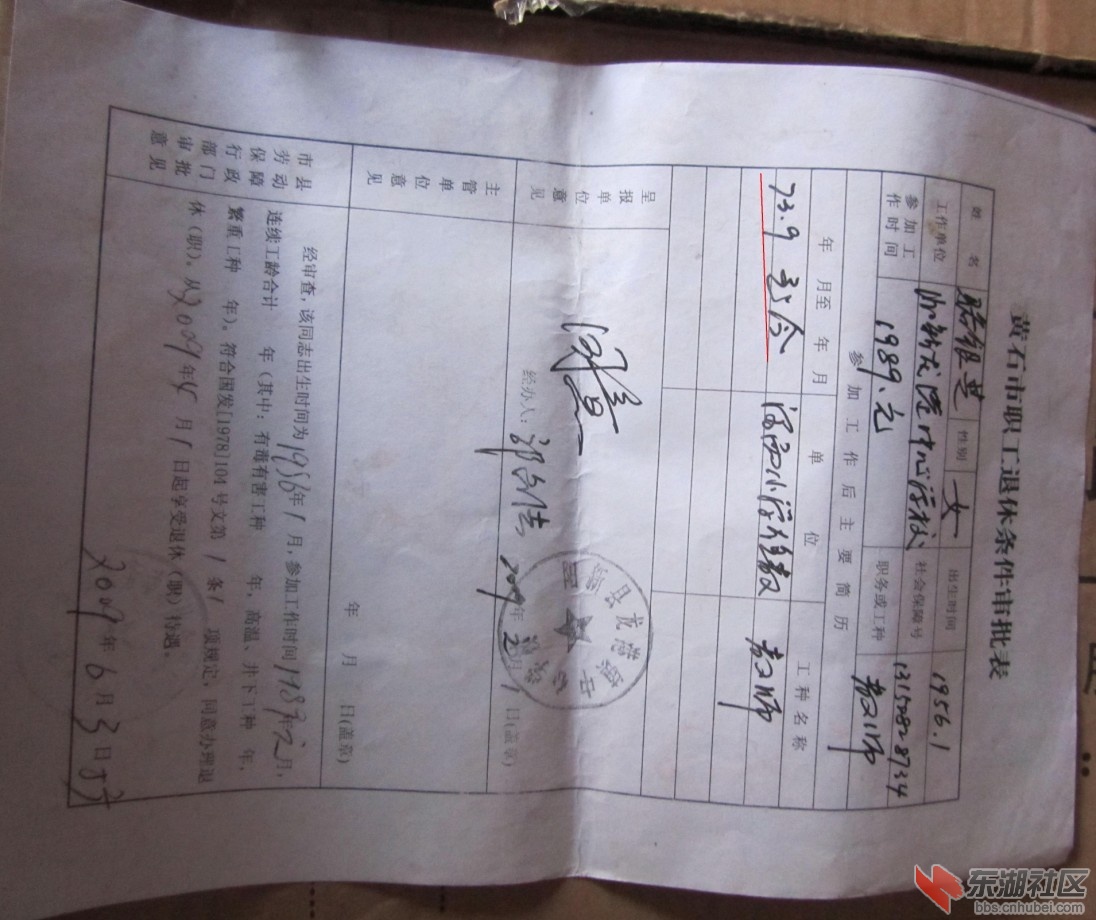 黄石市职工退休条件审批表
姓名 骆银芝 性别 女 出生时间 1956.1
工作单位 中心学校 社会保障号 13152828734
参加工作时间 1989.元 职务或工种 教师
参加工作后主要简历
年 月至 年 月 单位 工种名称
73.9 到今 小学任教 教师
呈报单位意见
经办人:
2009年 月1日(盖章)
主管单位意见
年 月 日(盖章)
市县劳动保障行政部门审批意见
经审查,该同志出生时间为1956年1月,参加工作时间1989年元月,
连续工龄合计 年(其中:有毒有害工种 年,高温、井下工种 年,
繁重工种 年)。符合国发[1978]104号文第1条1项规定,同意办理退
休(职)。从2009年5月1日起享受退休(职)待遇。
2009年6月3日
东湖社区
bbs.cnhubei.com